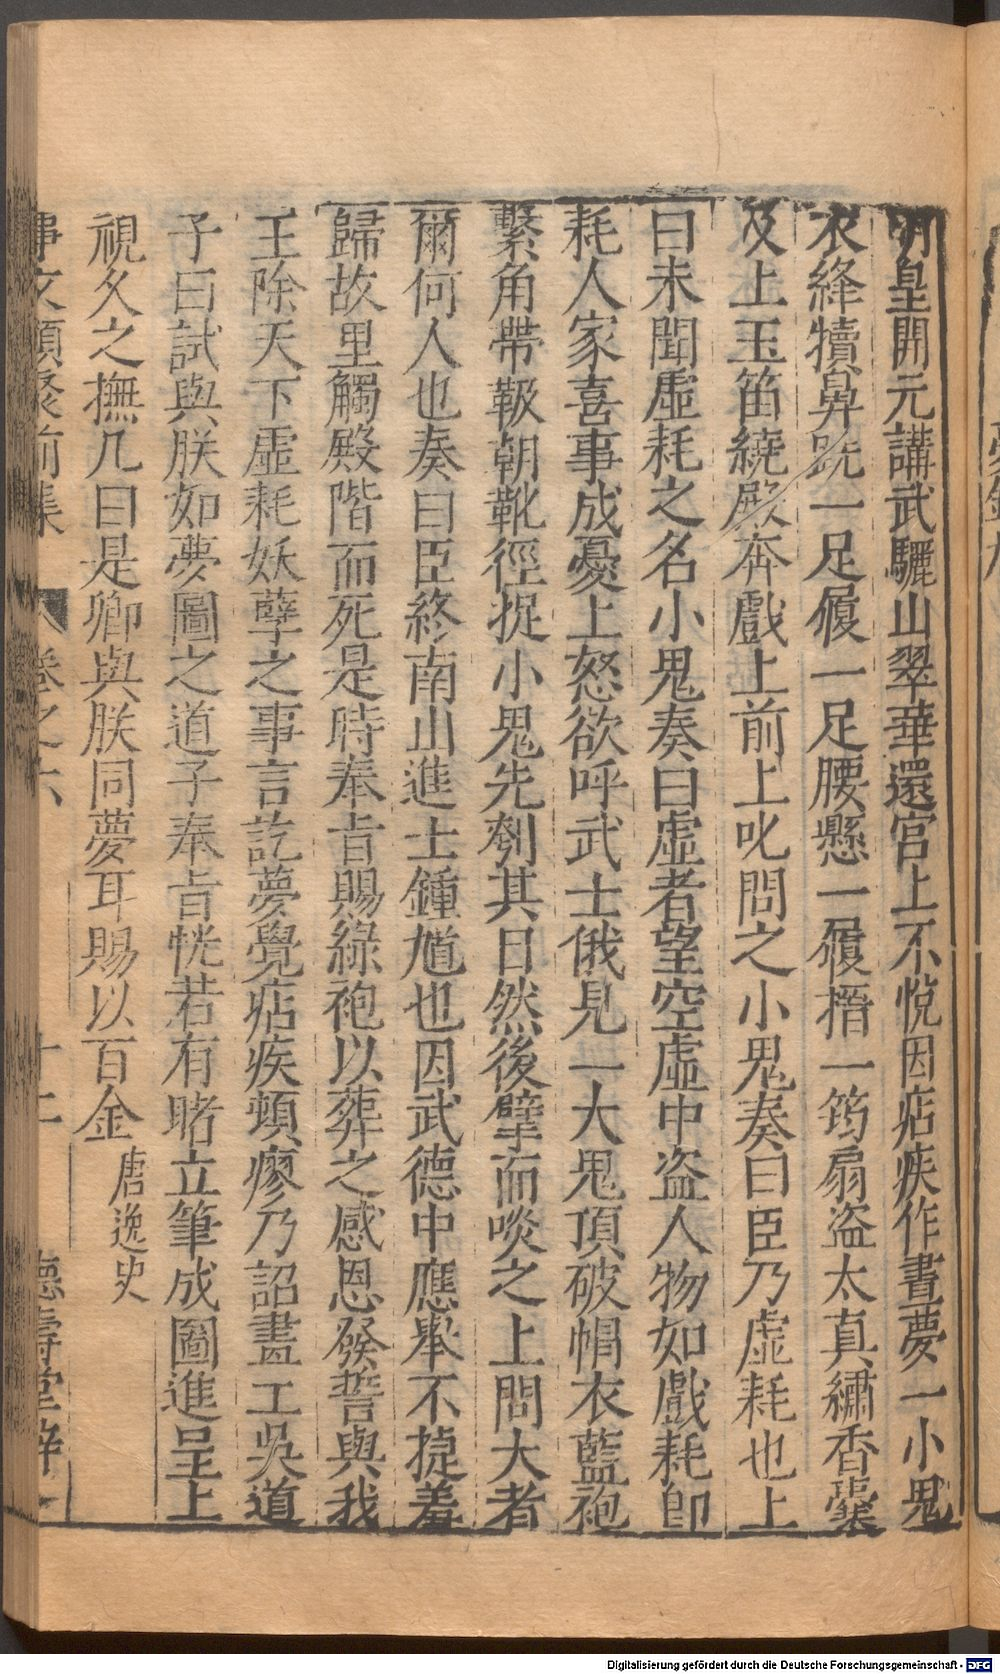 明皇開元講武驪山翠華還宮上不悅因痁疾作晝夢一小鬼
衣絳犢鼻跣一足履一足腰懸一履搢一筠扇盜太真繡香囊
及上玉笛繞殿奔戲上前上叱問之小鬼奏曰臣乃虛耗也上
曰未聞虛耗之名小鬼奏曰虛者望空虛中盜人物如戲耗即
耗人家喜事成憂上怒欲呼武士俄見一大鬼頂破帽衣藍袍
繫角帶靸朝靴徑捉小鬼先刳其目然後擘而啖之上問大者
爾何人也奏曰臣終南山進士鍾馗也因武德中應舉不㨗羞
歸故里觸殿階而死是時奉旨賜綠袍以葬之感恩發誓與我
王除天下虛耗妖孽之事言訖夢覺痁疾頓瘳乃詔畫工吳道
子曰試與朕如夢圖之道子奉旨恍若有睹立筆成圖進呈上
視久之撫几曰是卿與朕同夢耳賜以百金 唐逸史
事文類聚前集 卷之六 十二 德壽堂梓
Digitalisierung gefördert durch die Deutsche Forschungsgemeinschaft - DFG